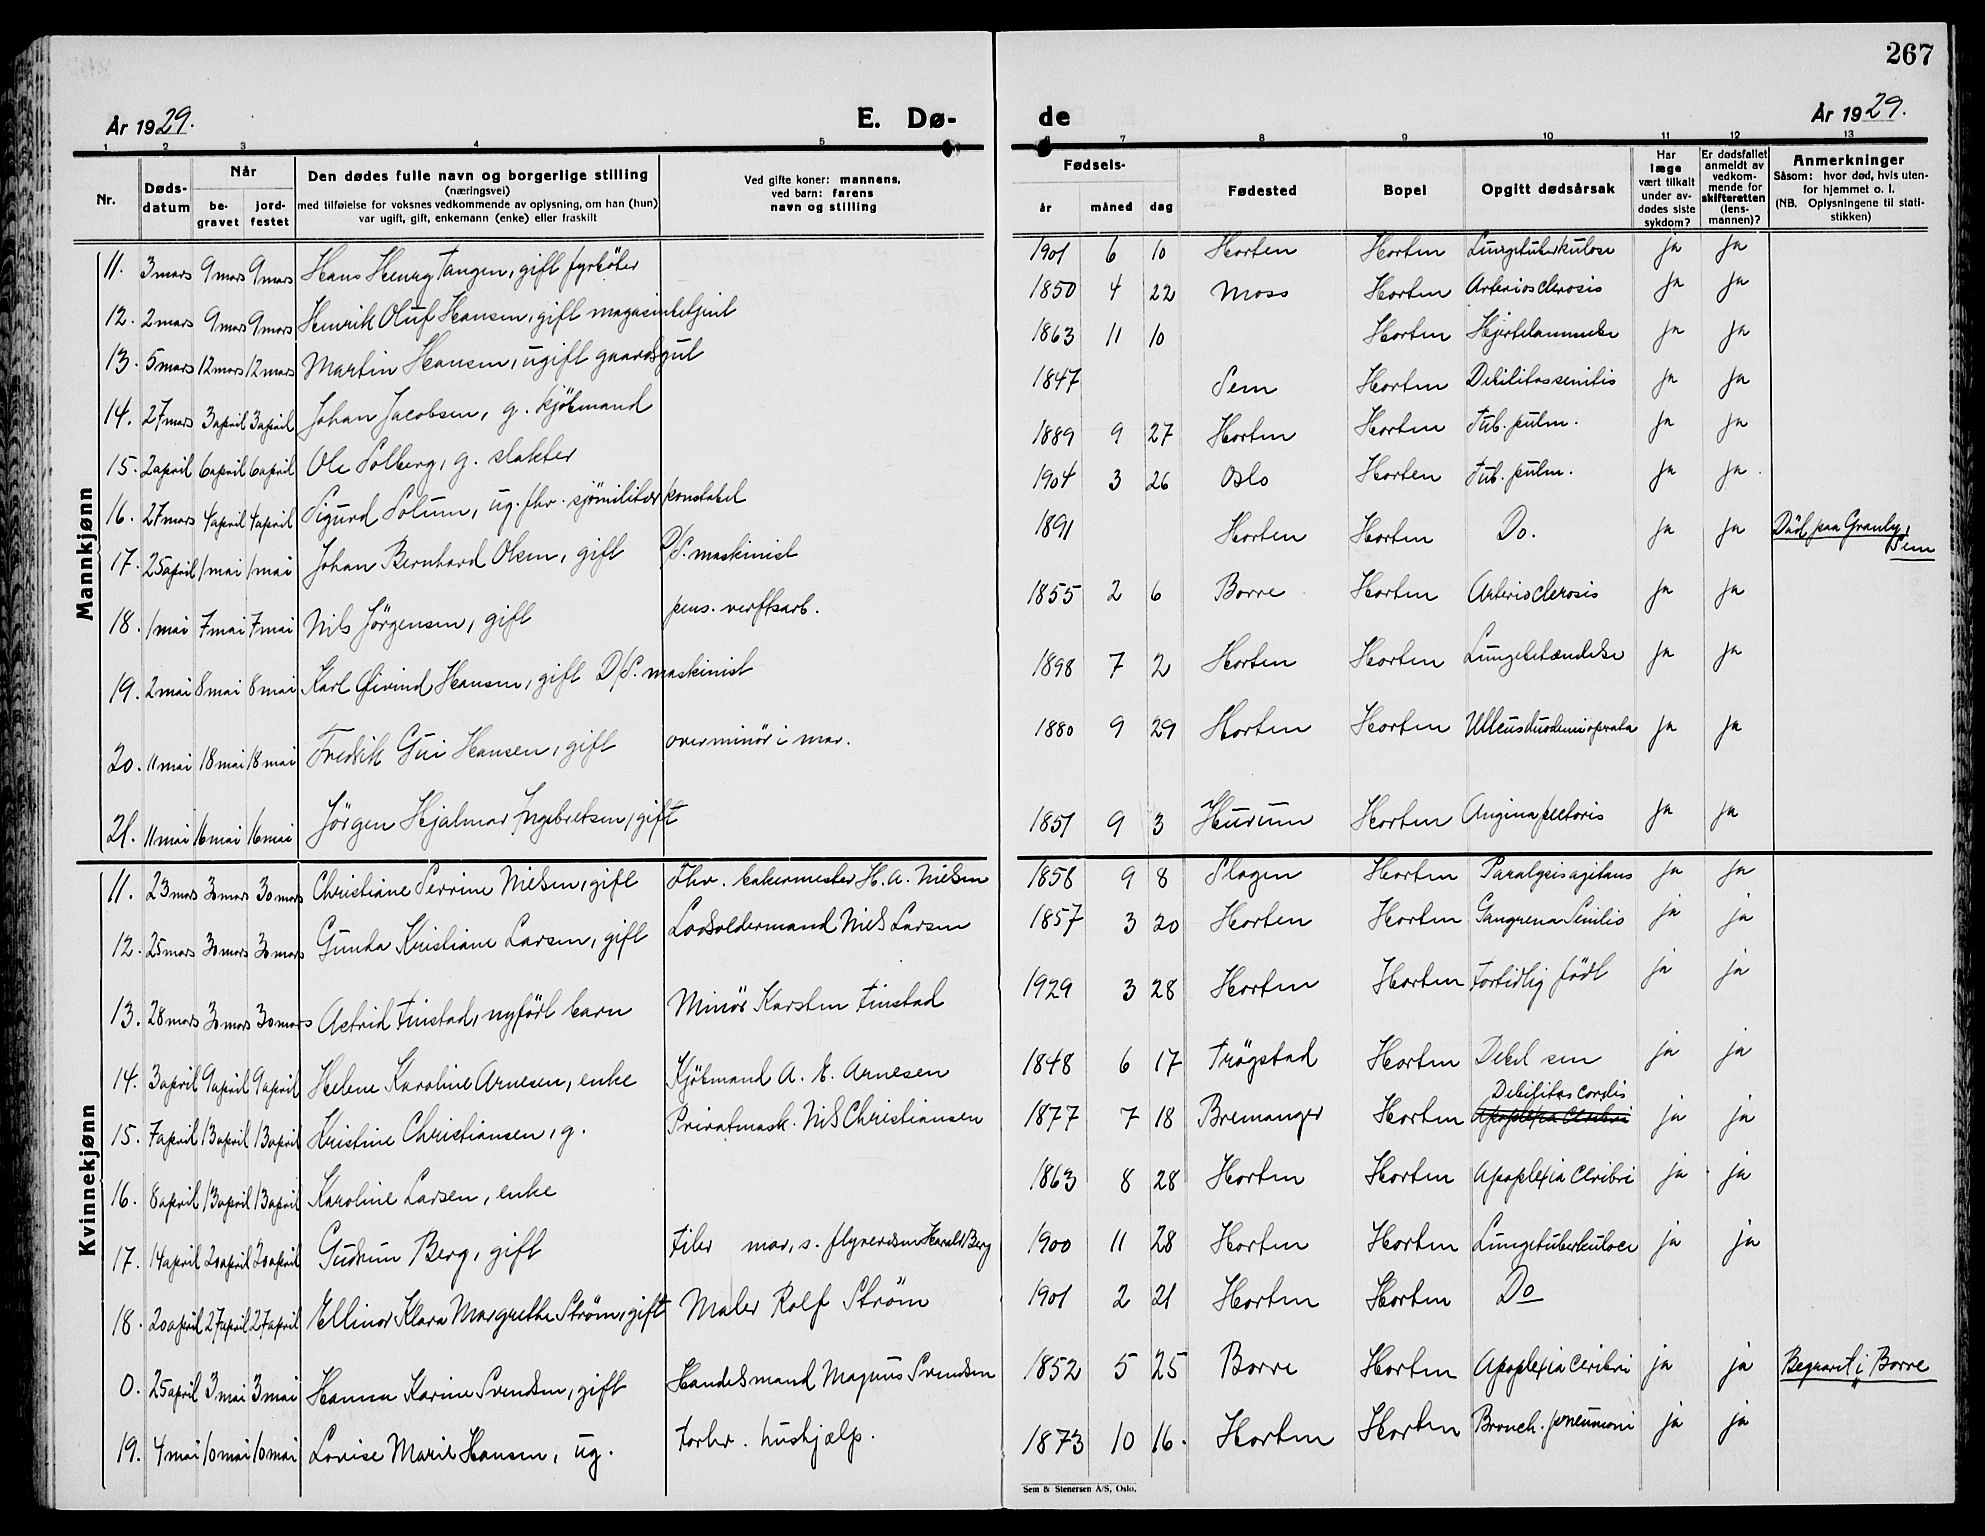 267
År 1929. E. Dø- de År 1929.
1 2 3 4 5 6 7 8 9 10 11 12 13
Nr. Dødsdatum Når begravet jordfestet
Den dødes fulle navn og borgerlige stilling
(næringsvei)
med tilføielse for voksnes vedkommende av oplysning, om han (hun)
var ugift, gift, enkemann (enke) eller fraskilt
Ved gifte koner: mannens,
ved barn: farens
navn og stilling
Fødsels- år måned dag
Fødested Bopel Opgitt dødsårsak
Har læge vært tilkalt under avdødes siste sykdom?
Er dødsfallet anmeldt av vedkommende for skifteretten (lensmannen)?
Anmerkninger
Såsom: hvor død, hvis utenfor hjemmet o. l.
(NB. Oplysningene til statistikken)
Mannkjønn
11. 3 mars 9 mars 9 mars Hans Henry Tangen, gift fyrböter 1901 6 10 Horten Horten Lungetuberkulose ja ja
12. 2 mars 9 mars 9 mars Henrik Oluf Hansen, gift magasinbetjent 1850 4 22 Moss Horten Arteriosclerosis ja ja
13. 5 mars 12 mars 12 mars Martin Hansen, ugift gaardsgut 1863 11 10 Horten Hjertelammelse ja ja
14. 27 mars 3 april 3 april Johan Jacobsen, g. kjöbmand 1847 Sem Horten Debilitas senilis ja ja
15. 2 april 6 april 6 april Ole Solberg, g. slakter 1889 9 27 Horten Horten Tub. pulm. ja ja
16. 27 mars 4 april 4 april Sigurd Solum, ug. fhv. sjömilitær konstabel 1904 3 26 Oslo Horten Tub. pulm. ja ja
17. 25 april 1 mai 1 mai Johan Bernhard Olsen, gift D/S. maskinist 1891 Horten Horten Do. ja ja Död paa Granly, Sem
18. 1 mai 7 mai 7 mai Nils Jörgensen, gift pens. verftsarb. 1855 2 6 Borre Horten Arteriosclerosis ja ja
19. 2 mai 8 mai 8 mai Karl Øivind Hansen, gift D/S. maskinist 1898 7 2 Horten Horten Lungebetændelse ja ja
20. 11 mai 18 mai 18 mai Fredrik Gui Hansen, gift overminör i mar. 1880 9 29 Horten Horten ja ja
21. 11 mai 16 mai 16 mai Jörgen Hjalmar Ingebretsen, gift 1851 9 3 Hurum Horten Angina pectoris ja ja
Kvinnekjønn
11. 23 mars 30 mars 30 mars Christiane Perrine Nielsen, gift Fhv. bakermester H. A. Nielsen 1858 9 8 Slagen Horten Paralysis agitans ja ja
12. 25 mars 30 mars 30 mars Gunda Kristiane Larsen, gift Losoldermand Nils Larsen 1857 3 20 Horten Horten Gangrena Senilis ja ja
13. 28 mars 30 mars 30 mars Astrid Finstad, nyfödt barn Minör Karsten Finstad 1929 3 28 Horten Horten Fortidlig födt ja ja
14. 3 april 9 april 9 april Helene Karoline Arnesen, enke Kjöbmand A. E. Arnesen 1848 6 17 Trögstad Horten Debil sen ja ja
15. 7 april 13 april 13 april Kristine Christiansen, g. Privatmask. Nils Christiansen 1877 7 18 Bremanger Horten Debilitas cordis Apoplexia Ceribri ja ja
16. 8 april 13 april 13 april Karoline Larsen, enke 1863 8 28 Horten Horten Apoplexia Ceribri ja ja
17. 14 april 20 april 20 april Gudrun Berg, gift Filer mar, s. flyvevæsen Harald Berg 1900 11 28 Horten Horten Lungetuberkulose ja ja
18. 20 april 27 april 27 april Ellinor Klara Margrethe Strøm, gift Maler Rolf Strøm 1901 2 21 Horten Horten Do ja ja
0. 25 april 3 mai 3 mai Hanna Karine Svendsen, gift Handelsmand Magnus Svendsen 1852 5 25 Borre Horten Apoplexia Ceribri ja ja Begravet i Borre
19. 4 mai 10 mai 10 mai Lovise Marie Hansen, ug. Forhv. hushjælp. 1873 10 16. Horten Horten Bronch. pneumoni ja ja
Sem & Stenersen A/S, Oslo.